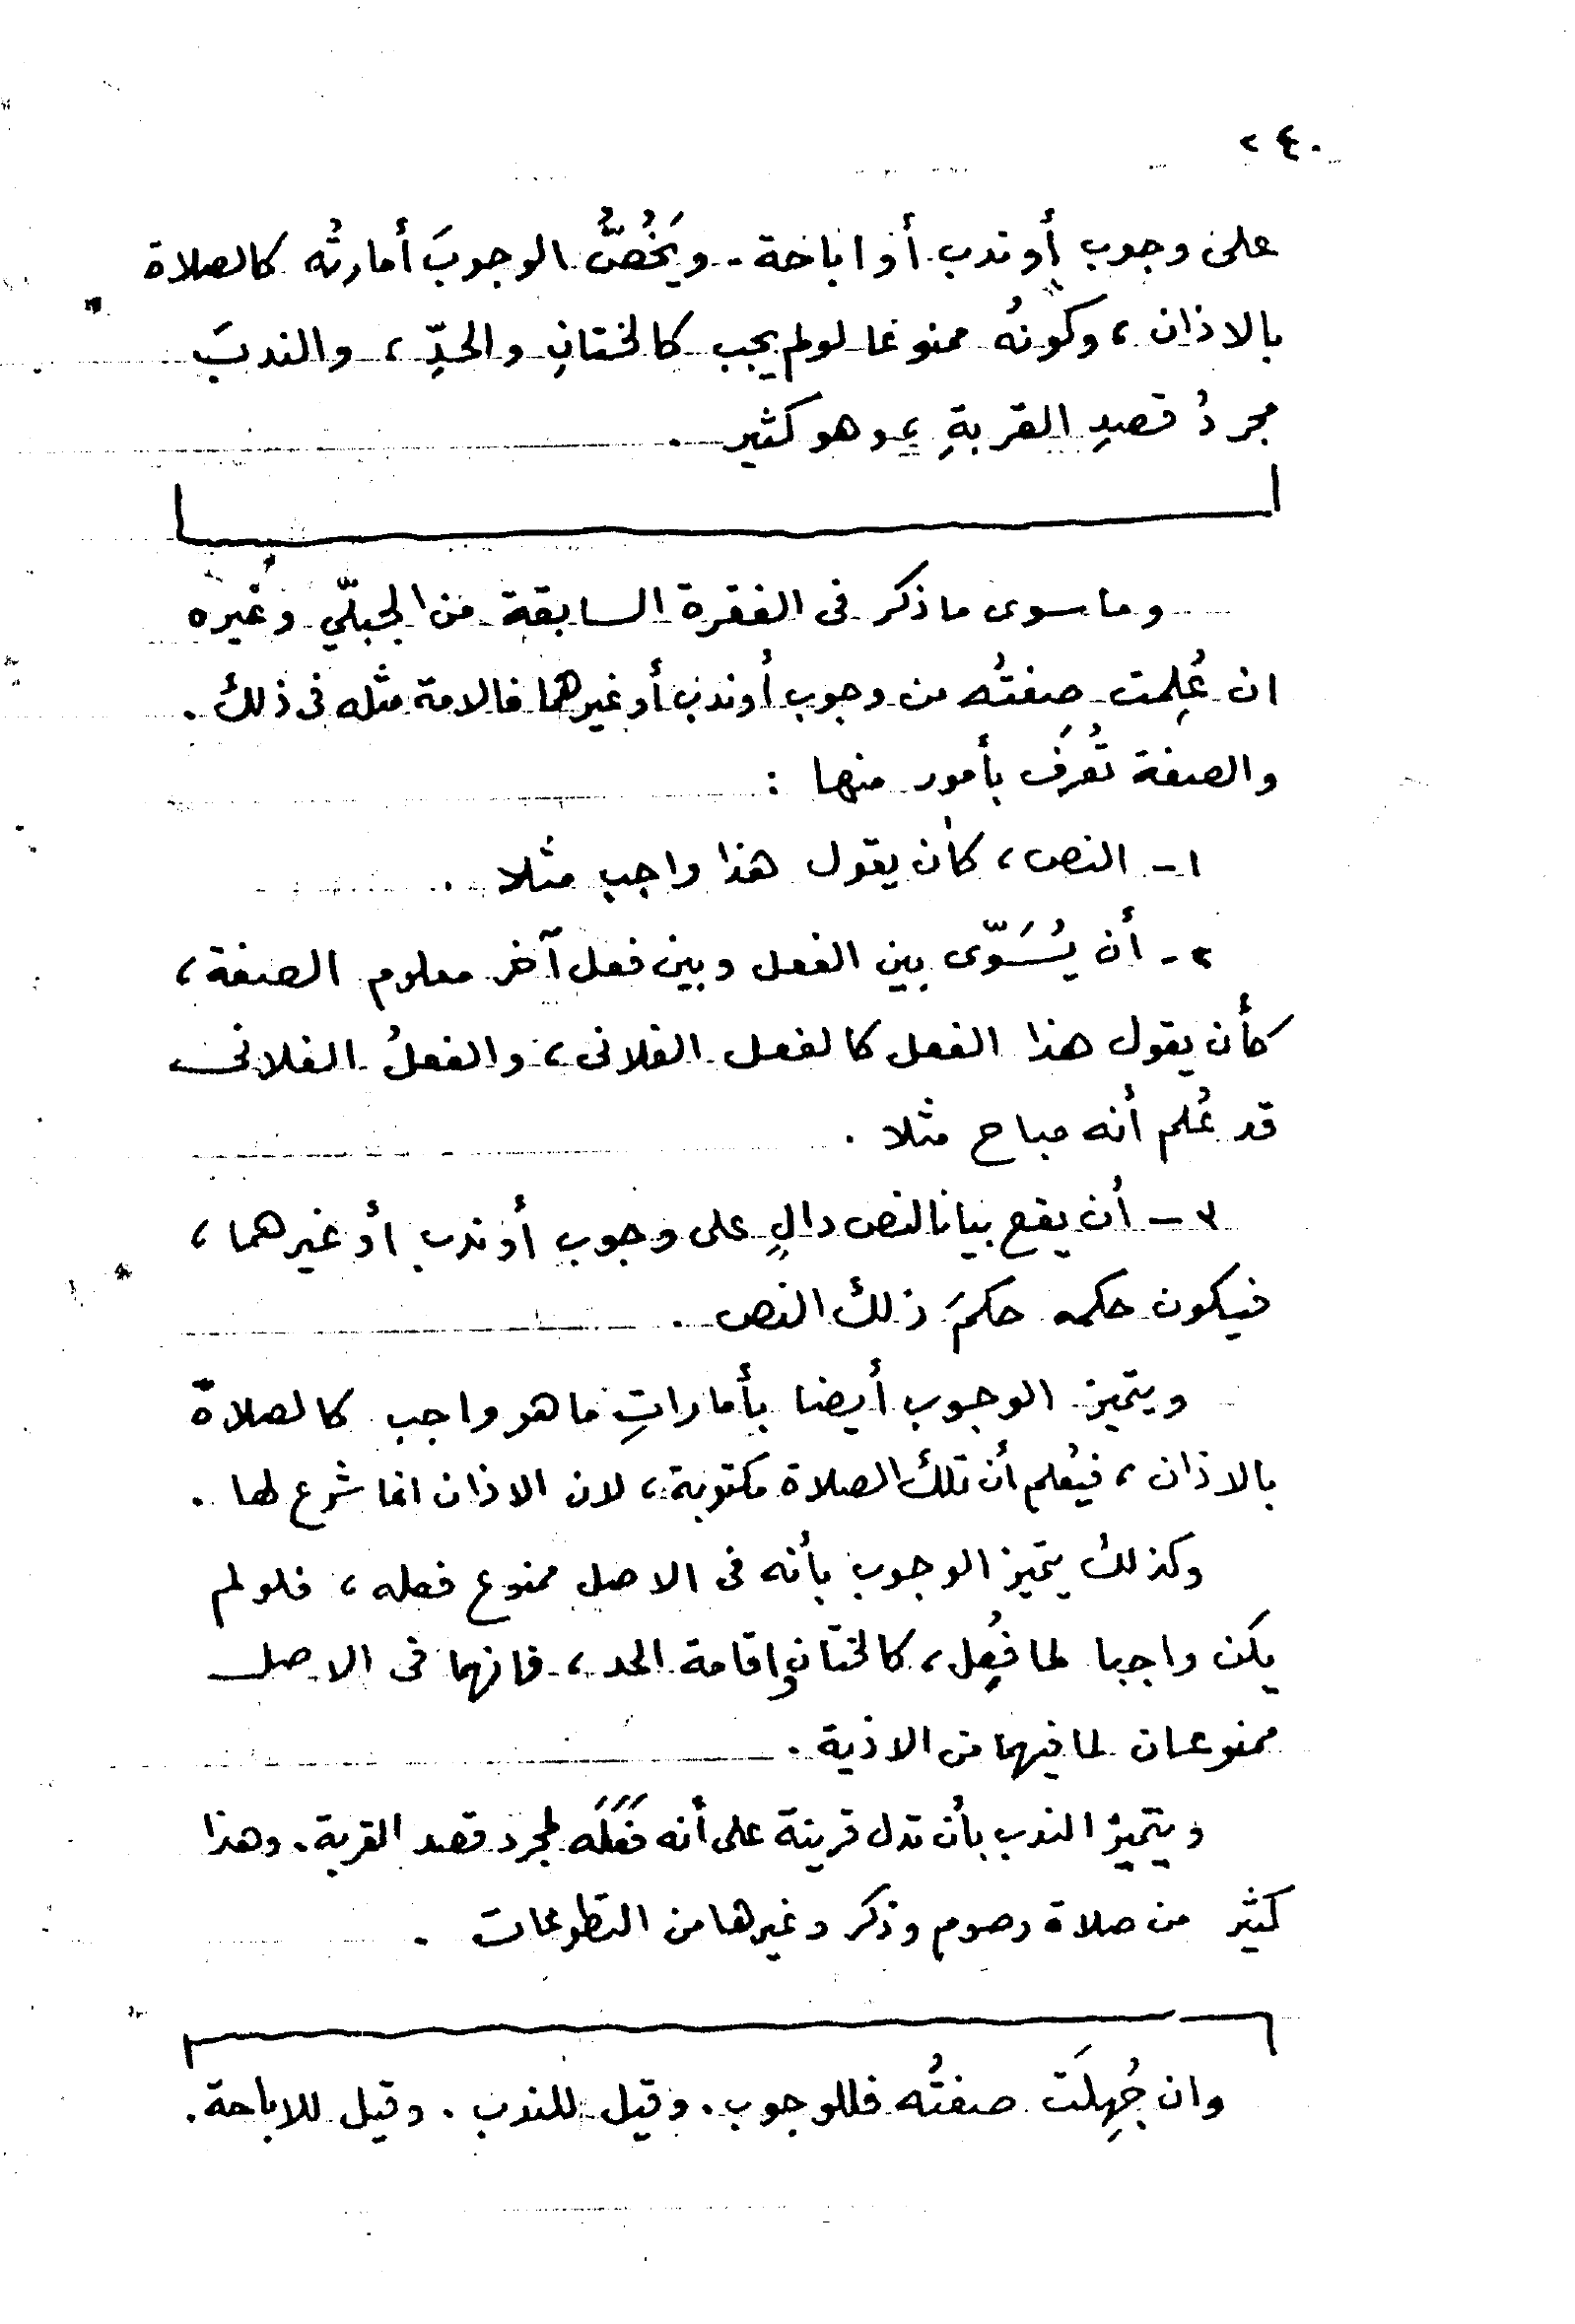 ٢٤٠
على وجوب أو ندب أو اباحة . ويَخُصُّ الوجوبَ أمارتُه كالصلاة
بالاذان ، وكونُه ممنوعا لو لم يجب كالختانِ والحدِّ ، والندبَ
مجردُ قصدِ القربةِ ، وهو كثير .
وما سوى ما ذكر فى الفقرة السابقة من الجبلّي وغيره
ان عُلِمت صفتُه من وجوب أو ندب أو غيرهما فالامة مثله فى ذلك .
والصفة تُعرَف بأمور منها :
١ - النص ، كأن يقول هذا واجب مثلا .
٢ - أن يُسَوّى بين الفعل وبين فعل آخر معلوم الصفة ،
كأن يقول هذا الفعل كالفعل الفلانى ، والفعلُ الفلانى
قد عُلم أنه مباح مثلا .
٣ - أن يقع بيانا لنص دالٍ على وجوب أو ندب أو غيرهما ،
فيكون حكمه حكمَ ذلك النص .
ويتميز الوجوب أيضا بأماراتِ ما هو واجب كالصلاة
بالاذان ، فيُعلم أن تلك الصلاة مكتوبة ، لان الاذان انما شرع لها .
وكذلك يتميز الوجوب بأنه فى الاصل ممنوع فعله ، فلو لم
يكن واجبا لما فُعِل ، كالختان واقامة الحد ، فانهما فى الاصل
ممنوعان لما فيهما من الاذية .
ويتميز الندب بأن تدل قرينة على أنه فَعَلَه لمجرد قصد القربة . وهذا
كثير من صلاة وصوم وذكر وغيرها من التطوعات .
وان جُهِلَت صفتُه فللوجوب . وقيل للندب . وقيل للاباحة .